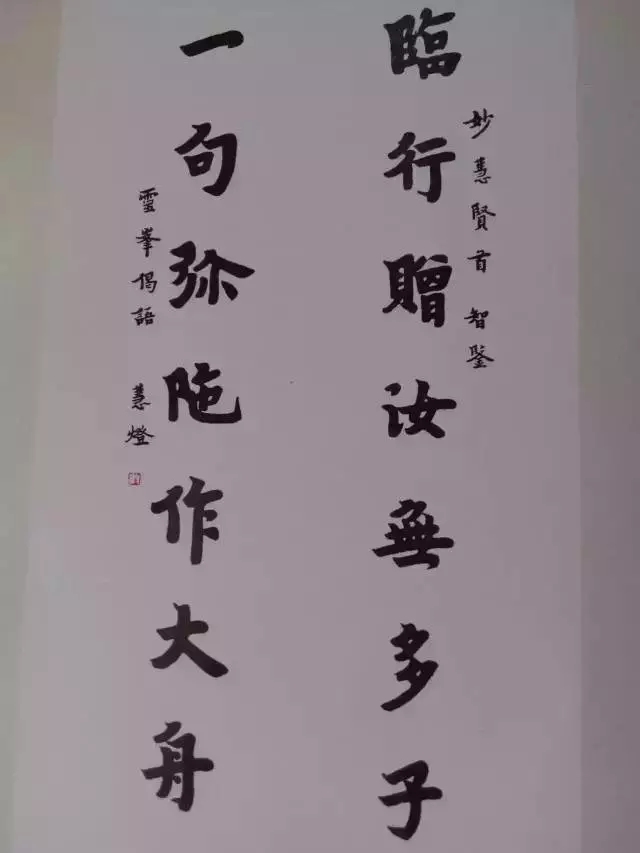 臨行贈汝無多子
妙慧賢首 智鑒
一句弥陁作大舟
靈峯偈語 慧燈